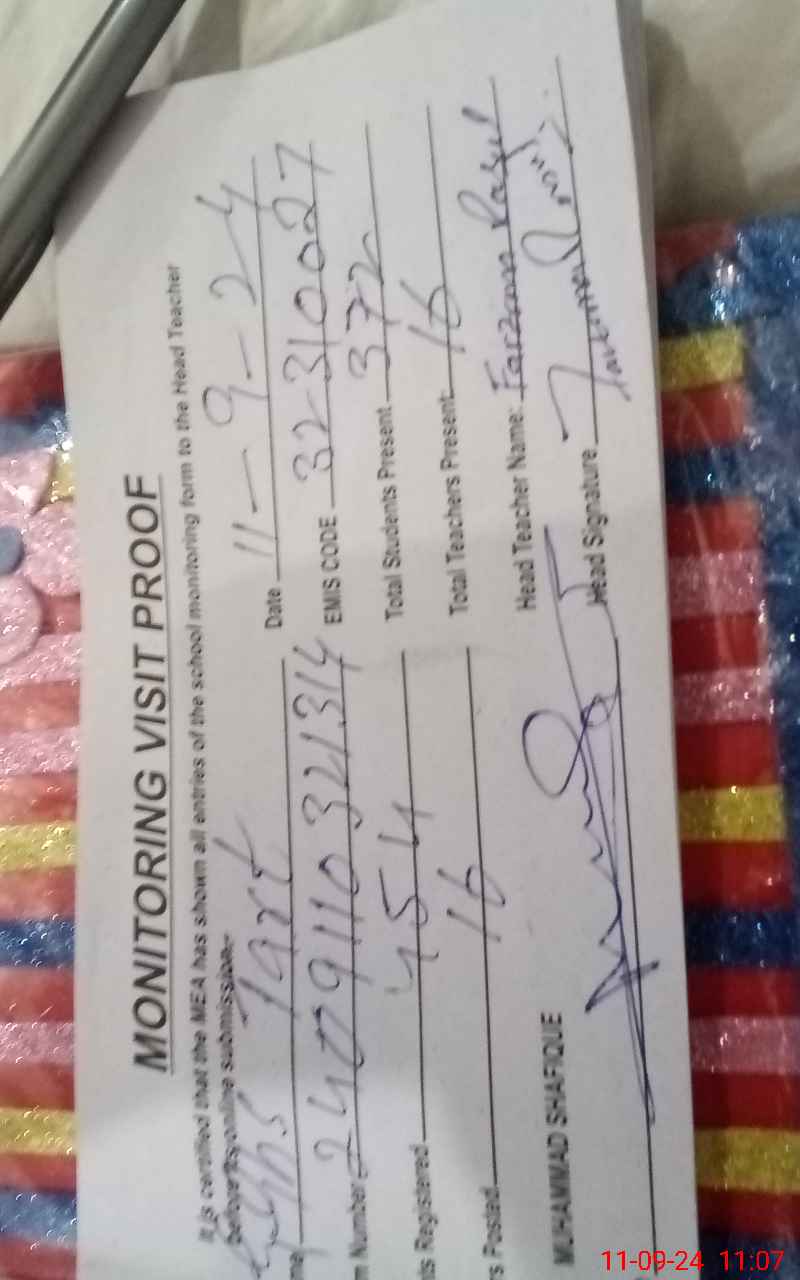 MONITORING VISIT PROOF
It is certified that the MEA has shown all entries of the school monitoring form to the Head Teacher
before its online submission:-
Date 11-9-24
m Number 2409110321314 EMIS CODE 32310027
ts Registered 454 Total Students Present 372
rs Posted 16 Total Teachers Present: 16
Head Teacher Name: Farzana Rasul
MUHAMMAD SHAFIQUE Head Signature
11-09-24 11:07